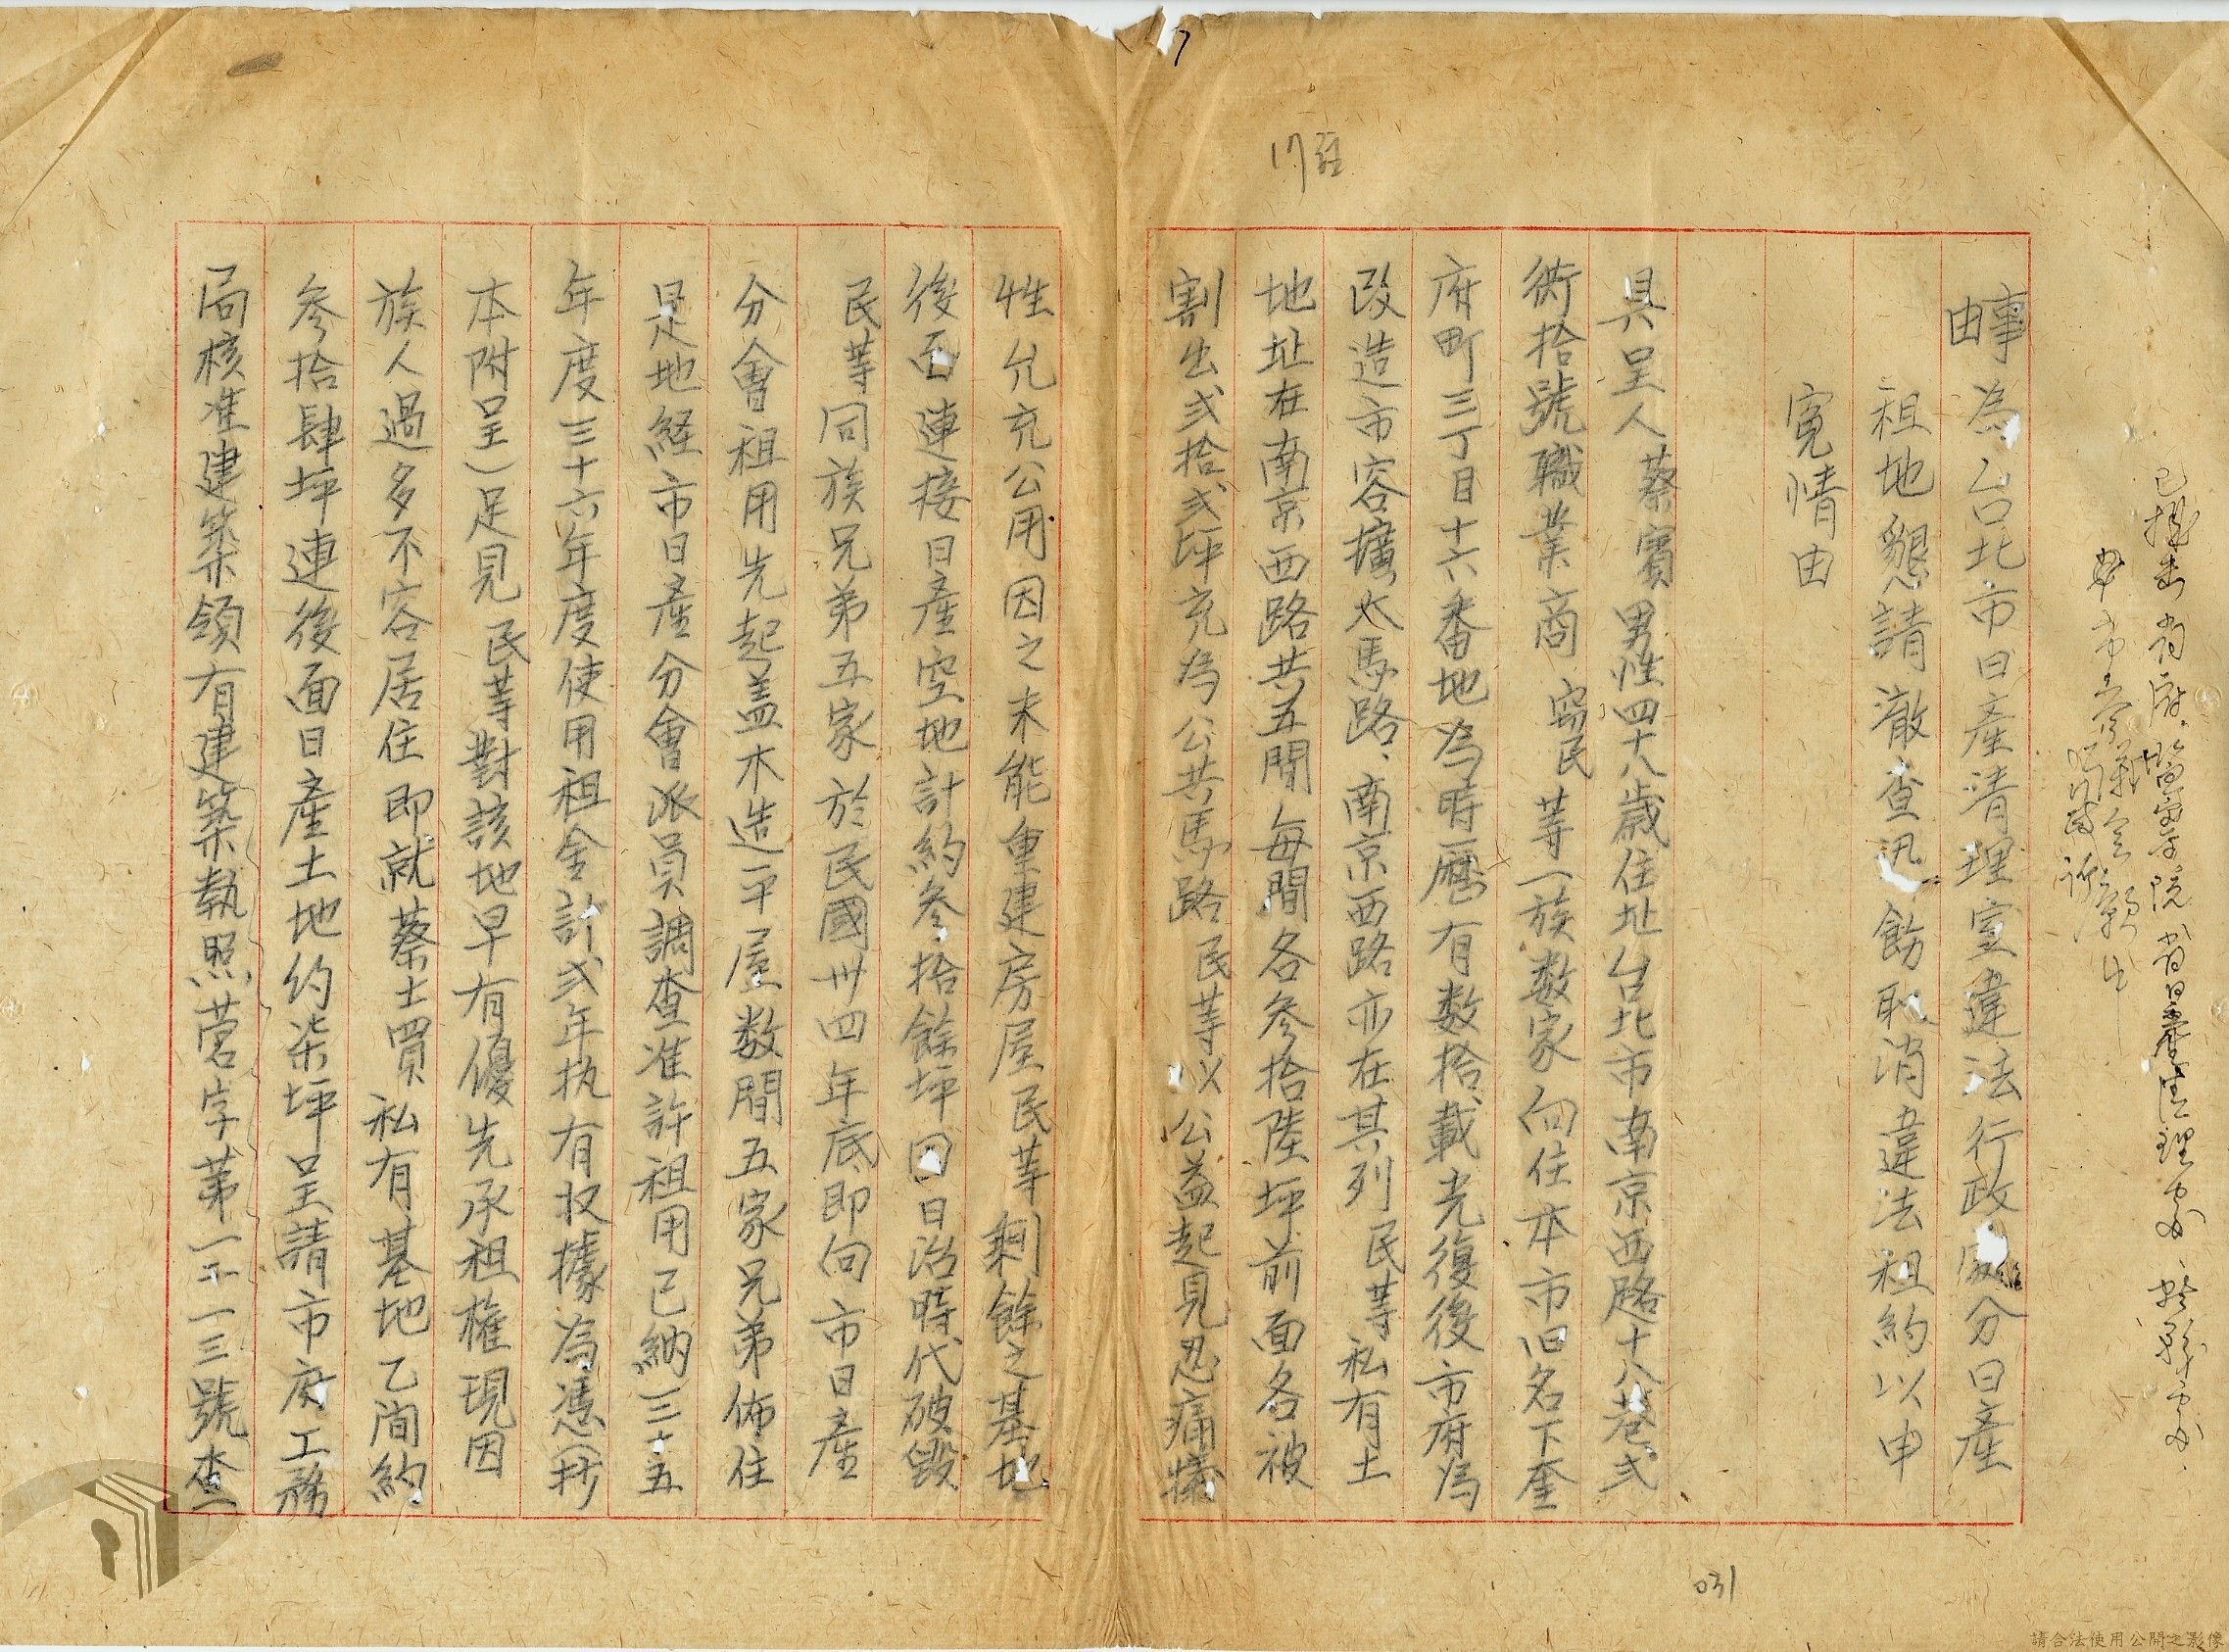 7
事由
為台北市日產清理室違法行政處分日產
租地懇請澈查迅飭取消違法租約以申
寃情由
具呈人蔡賓男性四十八歲住址台北市南京西路十八巷弍
衖拾號職業商 窃民等一族数家向住本市旧名下奎
府町三丁目十六番地為時歷有数拾載光復後市府為
改造市容擴大馬路、南京西路亦在其列民等私有土
地址在南京西路共五間每間各參拾陸坪前面各被
割出弍拾弍坪充為公共馬路民等以公益起見忍痛犧
牲允充公用因之未能重建房屋民等剩餘之基地
後面連接日產空地計約參拾餘坪因日治時代破毀
民等同族兄弟五家於民國卅四年底即向市日產
分會租用先起盖木造平屋数間五家兄弟佈住
是地経市日產分會派員調查准許租用已納三十五
年度三十六年度使用租金計弍年执有收據為憑(抄
本附呈)足見民等對該地早有優先承租權現因
族人過多不容居住即就蔡土買私有基地乙間約
參拾肆坪連後面日產土地約柒坪呈請市府工務
局核准建築領有建築執照营字第一二一三號查
031
請合法使用公開之影像